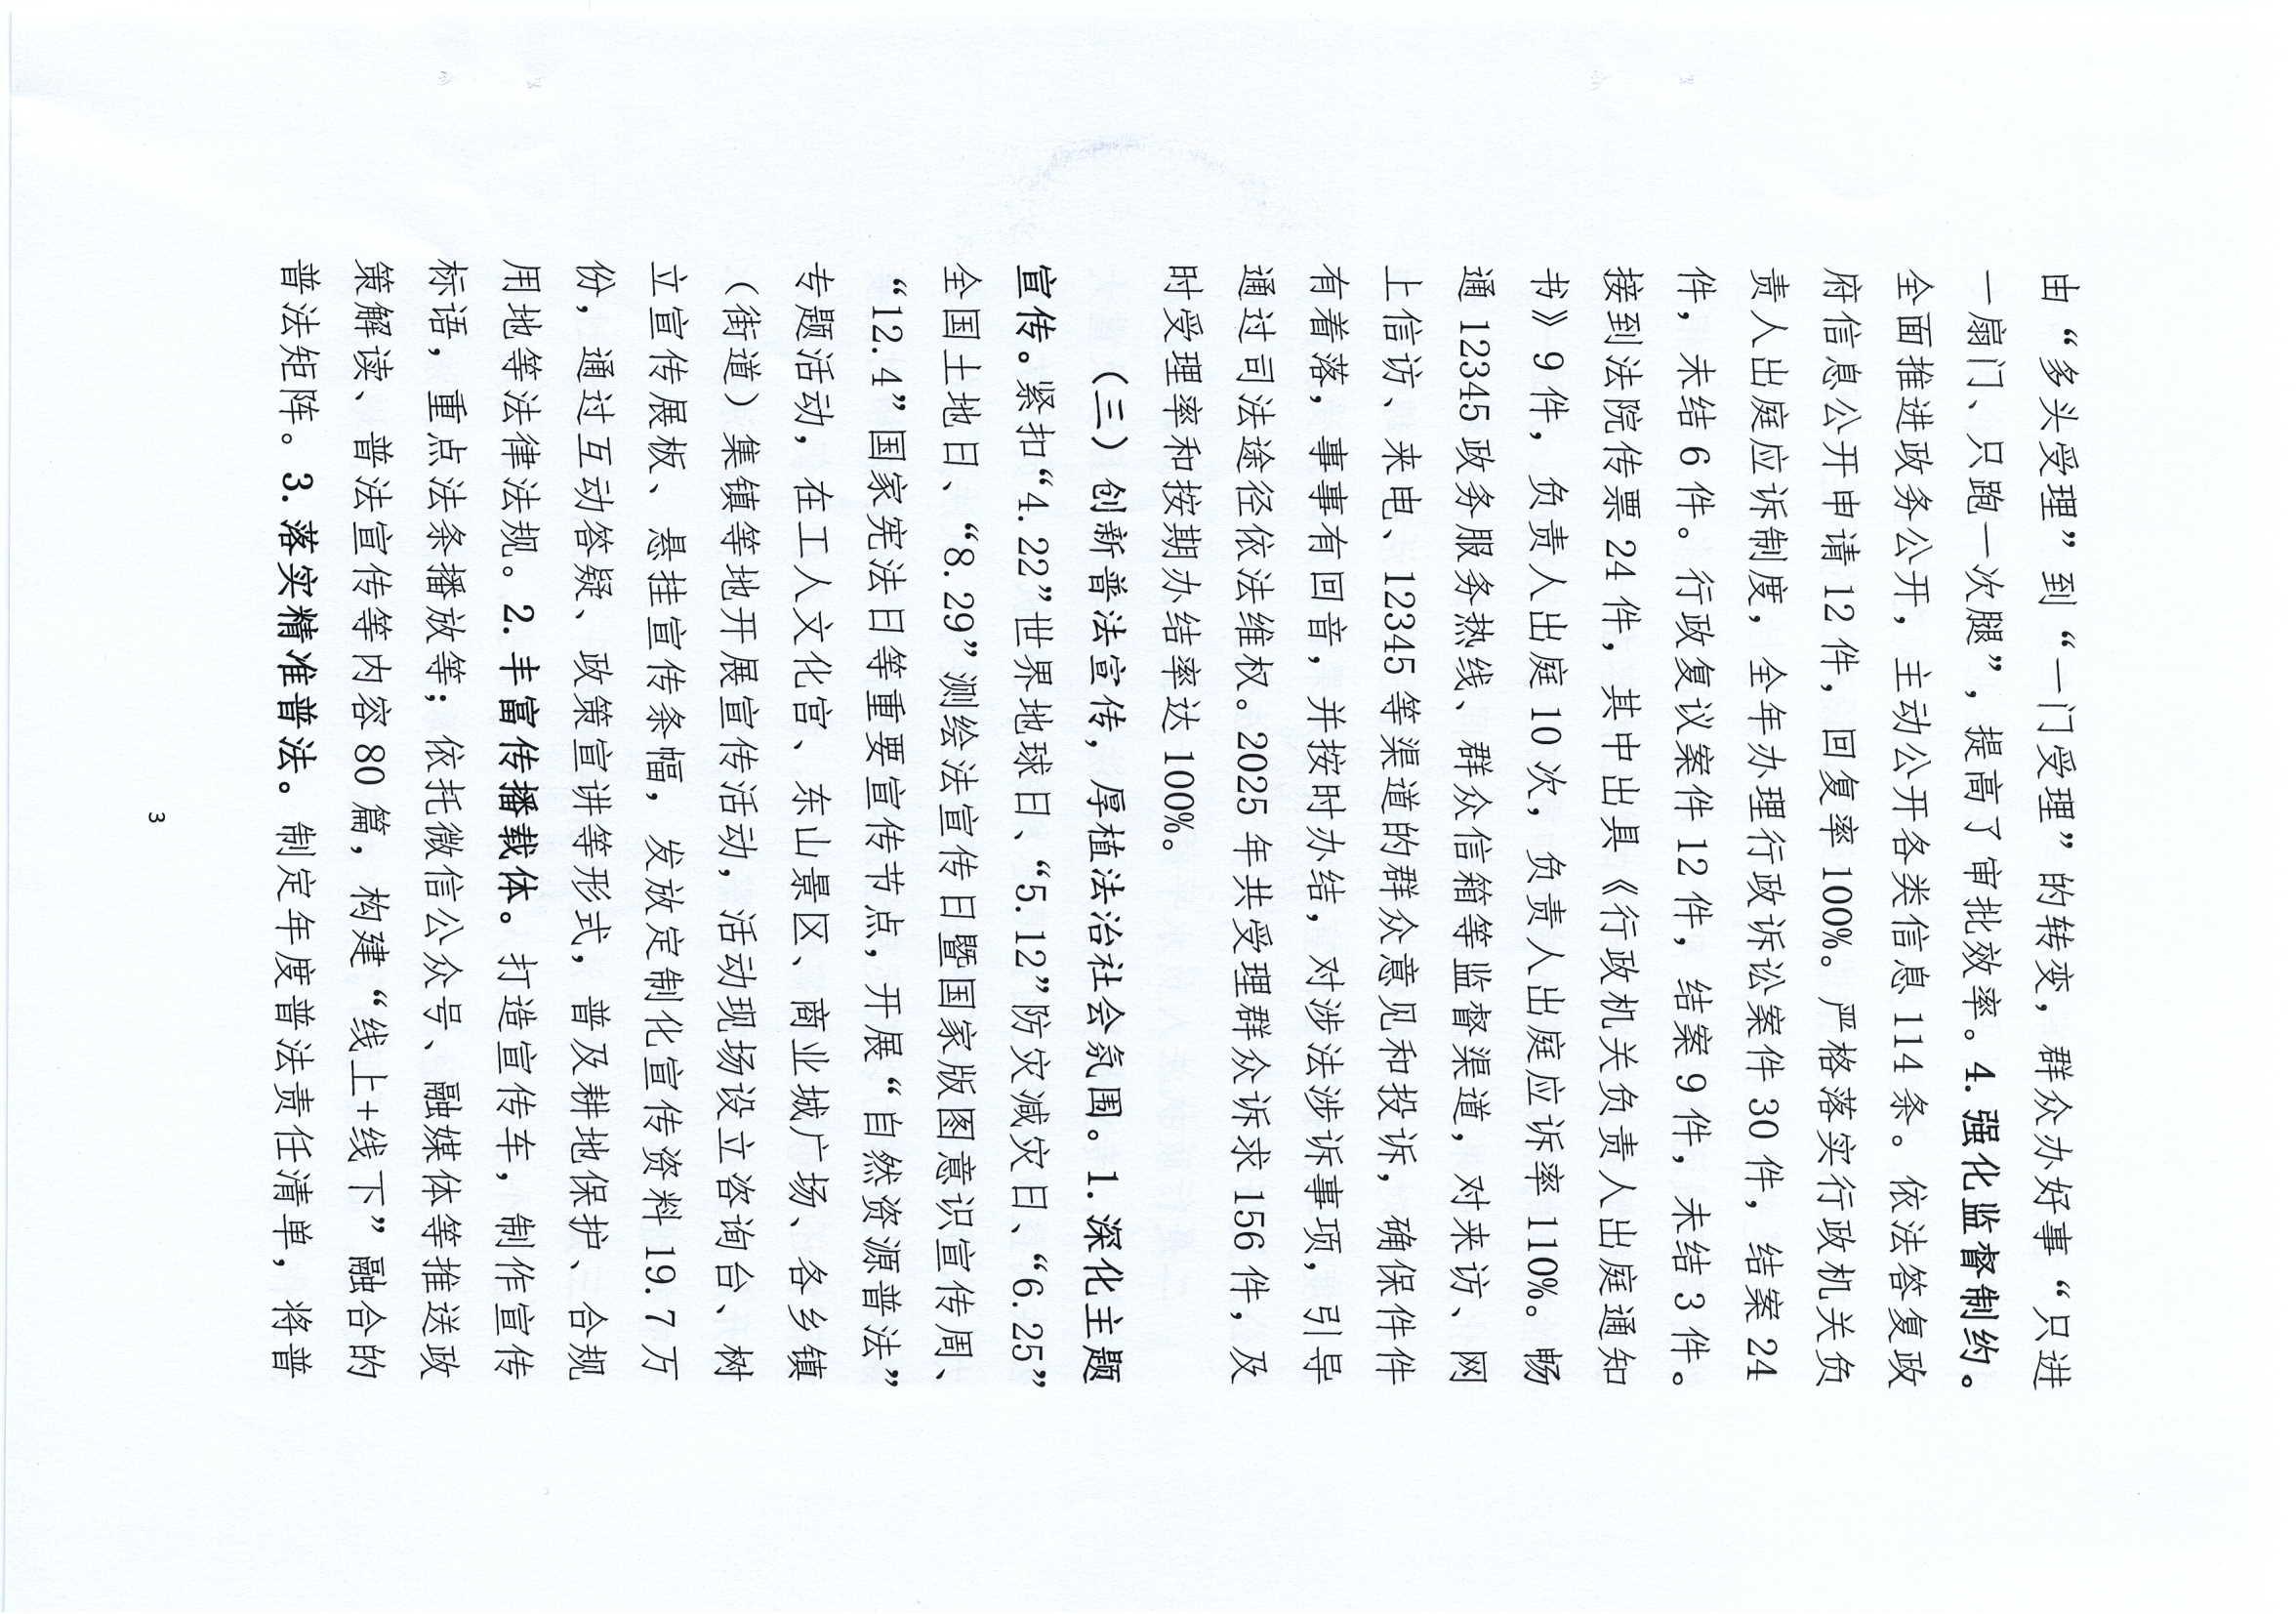 由“多头受理”到“一门受理”的转变，群众办好事“只进
一扇门、只跑一次腿”，提高了审批效率。4.强化监督制约。
全面推进政务公开，主动公开各类信息 114 条。依法答复政
府信息公开申请 12 件，回复率 100%。严格落实行政机关负
责人出庭应诉制度，全年办理行政诉讼案件 30 件，结案 24
件，未结 6 件。行政复议案件 12 件，结案 9 件，未结 3 件。
接到法院传票 24 件，其中出具《行政机关负责人出庭通知
书》9 件，负责人出庭 10 次，负责人出庭应诉率 110%。畅
通 12345 政务服务热线、群众信箱等监督渠道，对来访、网
上信访、来电、12345 等渠道的群众意见和投诉，确保件件
有着落，事事有回音，并按时办结，对涉法涉诉事项，引导
通过司法途径依法维权。2025 年共受理群众诉求 156 件，及
时受理率和按期办结率达 100%。
（三）创新普法宣传，厚植法治社会氛围。1.深化主题
宣传。紧扣“4.22”世界地球日、“5.12”防灾减灾日、“6.25”
全国土地日、“8.29”测绘法宣传日暨国家版图意识宣传周、
“12.4”国家宪法日等重要宣传节点，开展“自然资源普法”
专题活动，在工人文化宫、东山景区、商业城广场、各乡镇
（街道）集镇等地开展宣传活动，活动现场设立咨询台、树
立宣传展板、悬挂宣传条幅，发放定制化宣传资料 19.7 万
份，通过互动答疑、政策宣讲等形式，普及耕地保护、合规
用地等法律法规。2.丰富传播载体。打造宣传车，制作宣传
标语，重点法条播放等；依托微信公众号、融媒体等推送政
策解读、普法宣传等内容 80 篇，构建“线上+线下”融合的
普法矩阵。3.落实精准普法。制定年度普法责任清单，将普
3